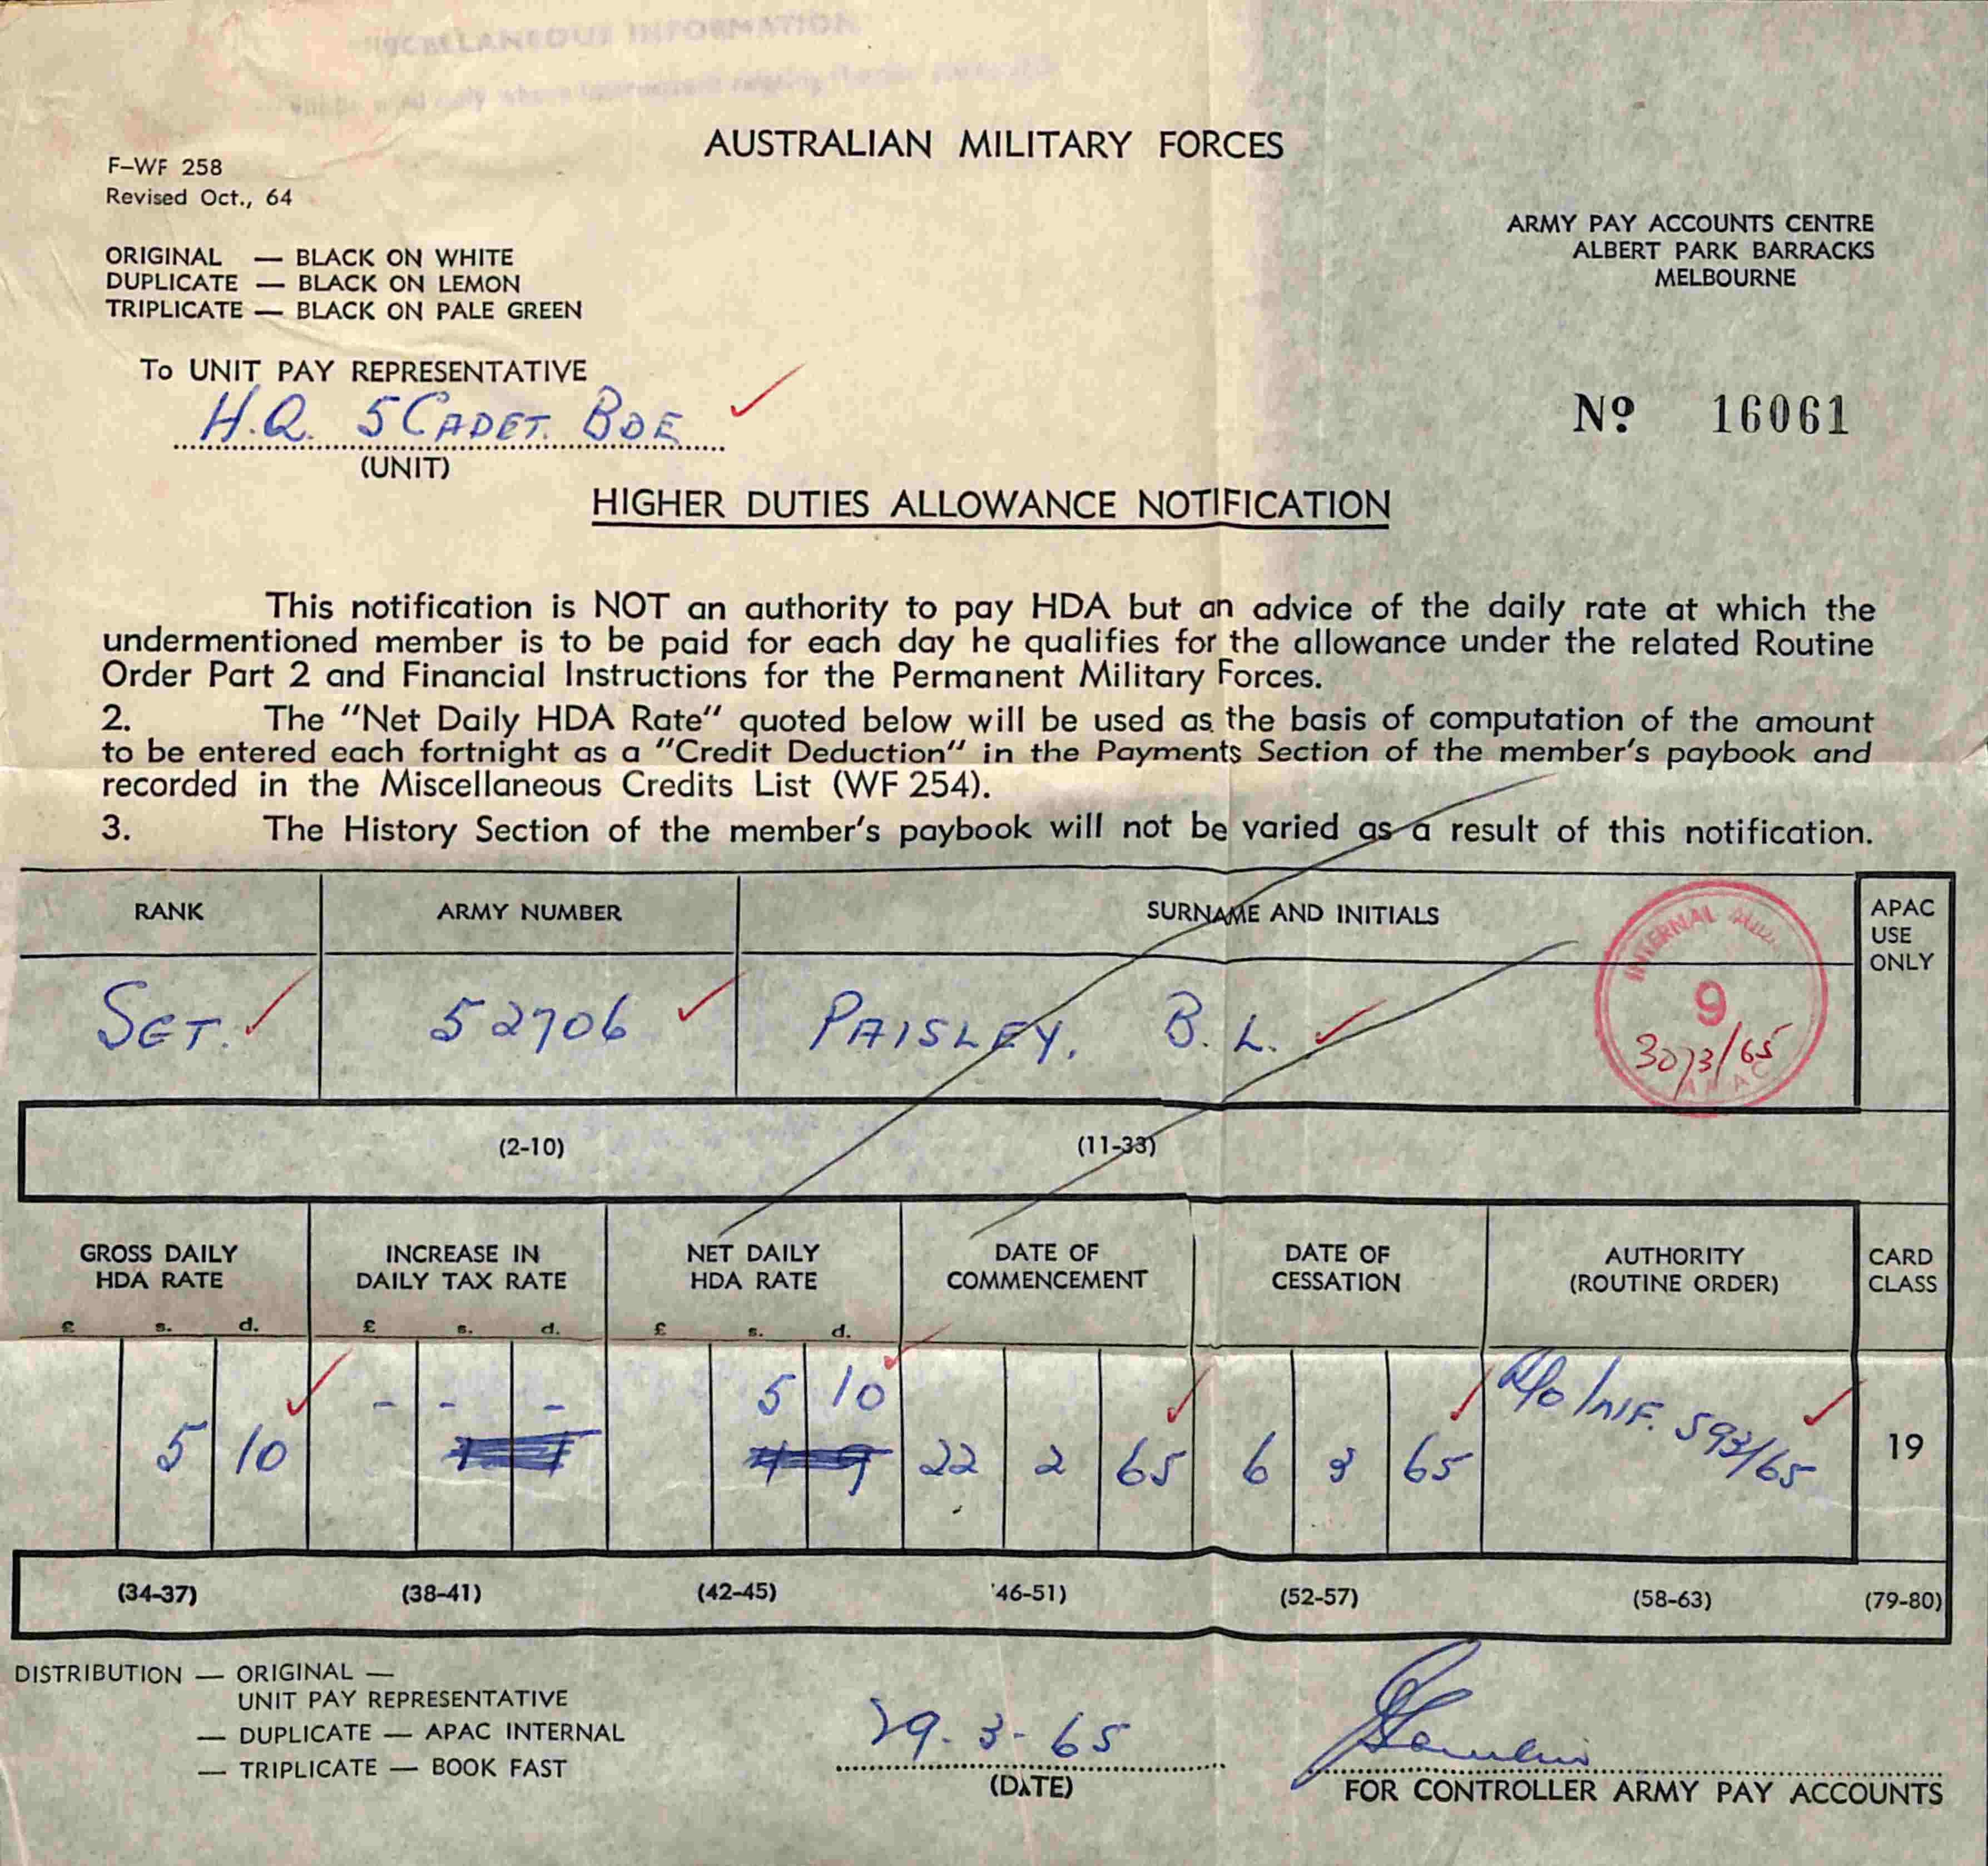 MISCELLANEOUS INFORMATION
AUSTRALIAN MILITARY FORCES
F-WF 258
Revised Oct., 64
ARMY PAY ACCOUNTS CENTRE
ALBERT PARK BARRACKS
MELBOURNE
ORIGINAL — BLACK ON WHITE
DUPLICATE — BLACK ON LEMON
TRIPLICATE — BLACK ON PALE GREEN
To UNIT PAY REPRESENTATIVE
H.Q. 5 CADET. BDE
(UNIT)
Nº 16061
HIGHER DUTIES ALLOWANCE NOTIFICATION
This notification is NOT an authority to pay HDA but an advice of the daily rate at which the
undermentioned member is to be paid for each day he qualifies for the allowance under the related Routine
Order Part 2 and Financial Instructions for the Permanent Military Forces.
2. The "Net Daily HDA Rate" quoted below will be used as the basis of computation of the amount
to be entered each fortnight as a "Credit Deduction" in the Payments Section of the member's paybook and
recorded in the Miscellaneous Credits List (WF 254).
3. The History Section of the member's paybook will not be varied as a result of this notification.
RANK ARMY NUMBER SURNAME AND INITIALS
APAC
USE
ONLY
SGT. 52706 PAISLEY. B. L.
INTERNAL
9
30/3/65
APAC
(2-10) (11-33)
GROSS DAILY
HDA RATE
INCREASE IN
DAILY TAX RATE
NET DAILY
HDA RATE
DATE OF
COMMENCEMENT
DATE OF
CESSATION
AUTHORITY
(ROUTINE ORDER)
CARD
CLASS
£ s. d. £ s. d. £ s. d.
- - - 5 10
5 10 22 2 65 6 3 65 593/65 19
(34-37) (38-41) (42-45) 46-51) (52-57) (58-63) (79-80)
DISTRIBUTION — ORIGINAL —
UNIT PAY REPRESENTATIVE
— DUPLICATE — APAC INTERNAL
— TRIPLICATE — BOOK FAST
29. 3. 65
(DATE)
FOR CONTROLLER ARMY PAY ACCOUNTS